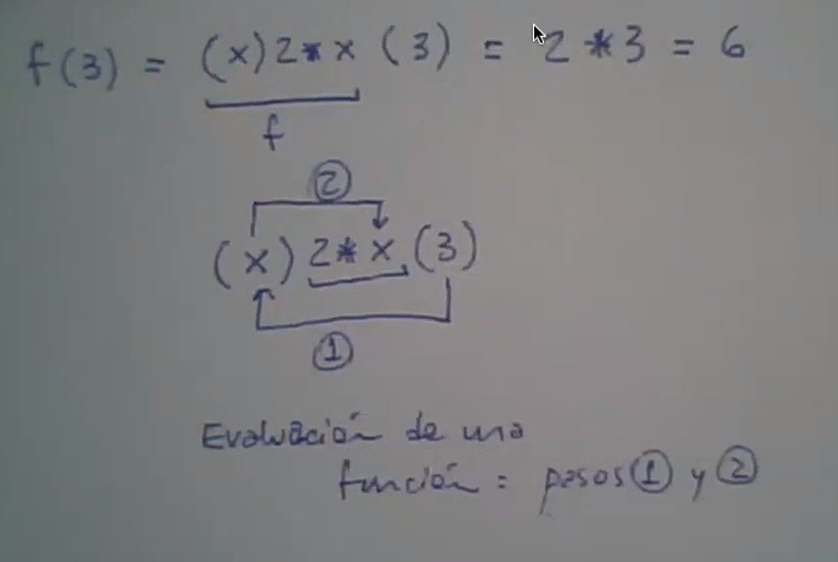 f(3) = (x)2*x (3) = 2*3 = 6
f
②
(x) 2*x (3)
①
Evaluación de una
función = pasos ① y ②